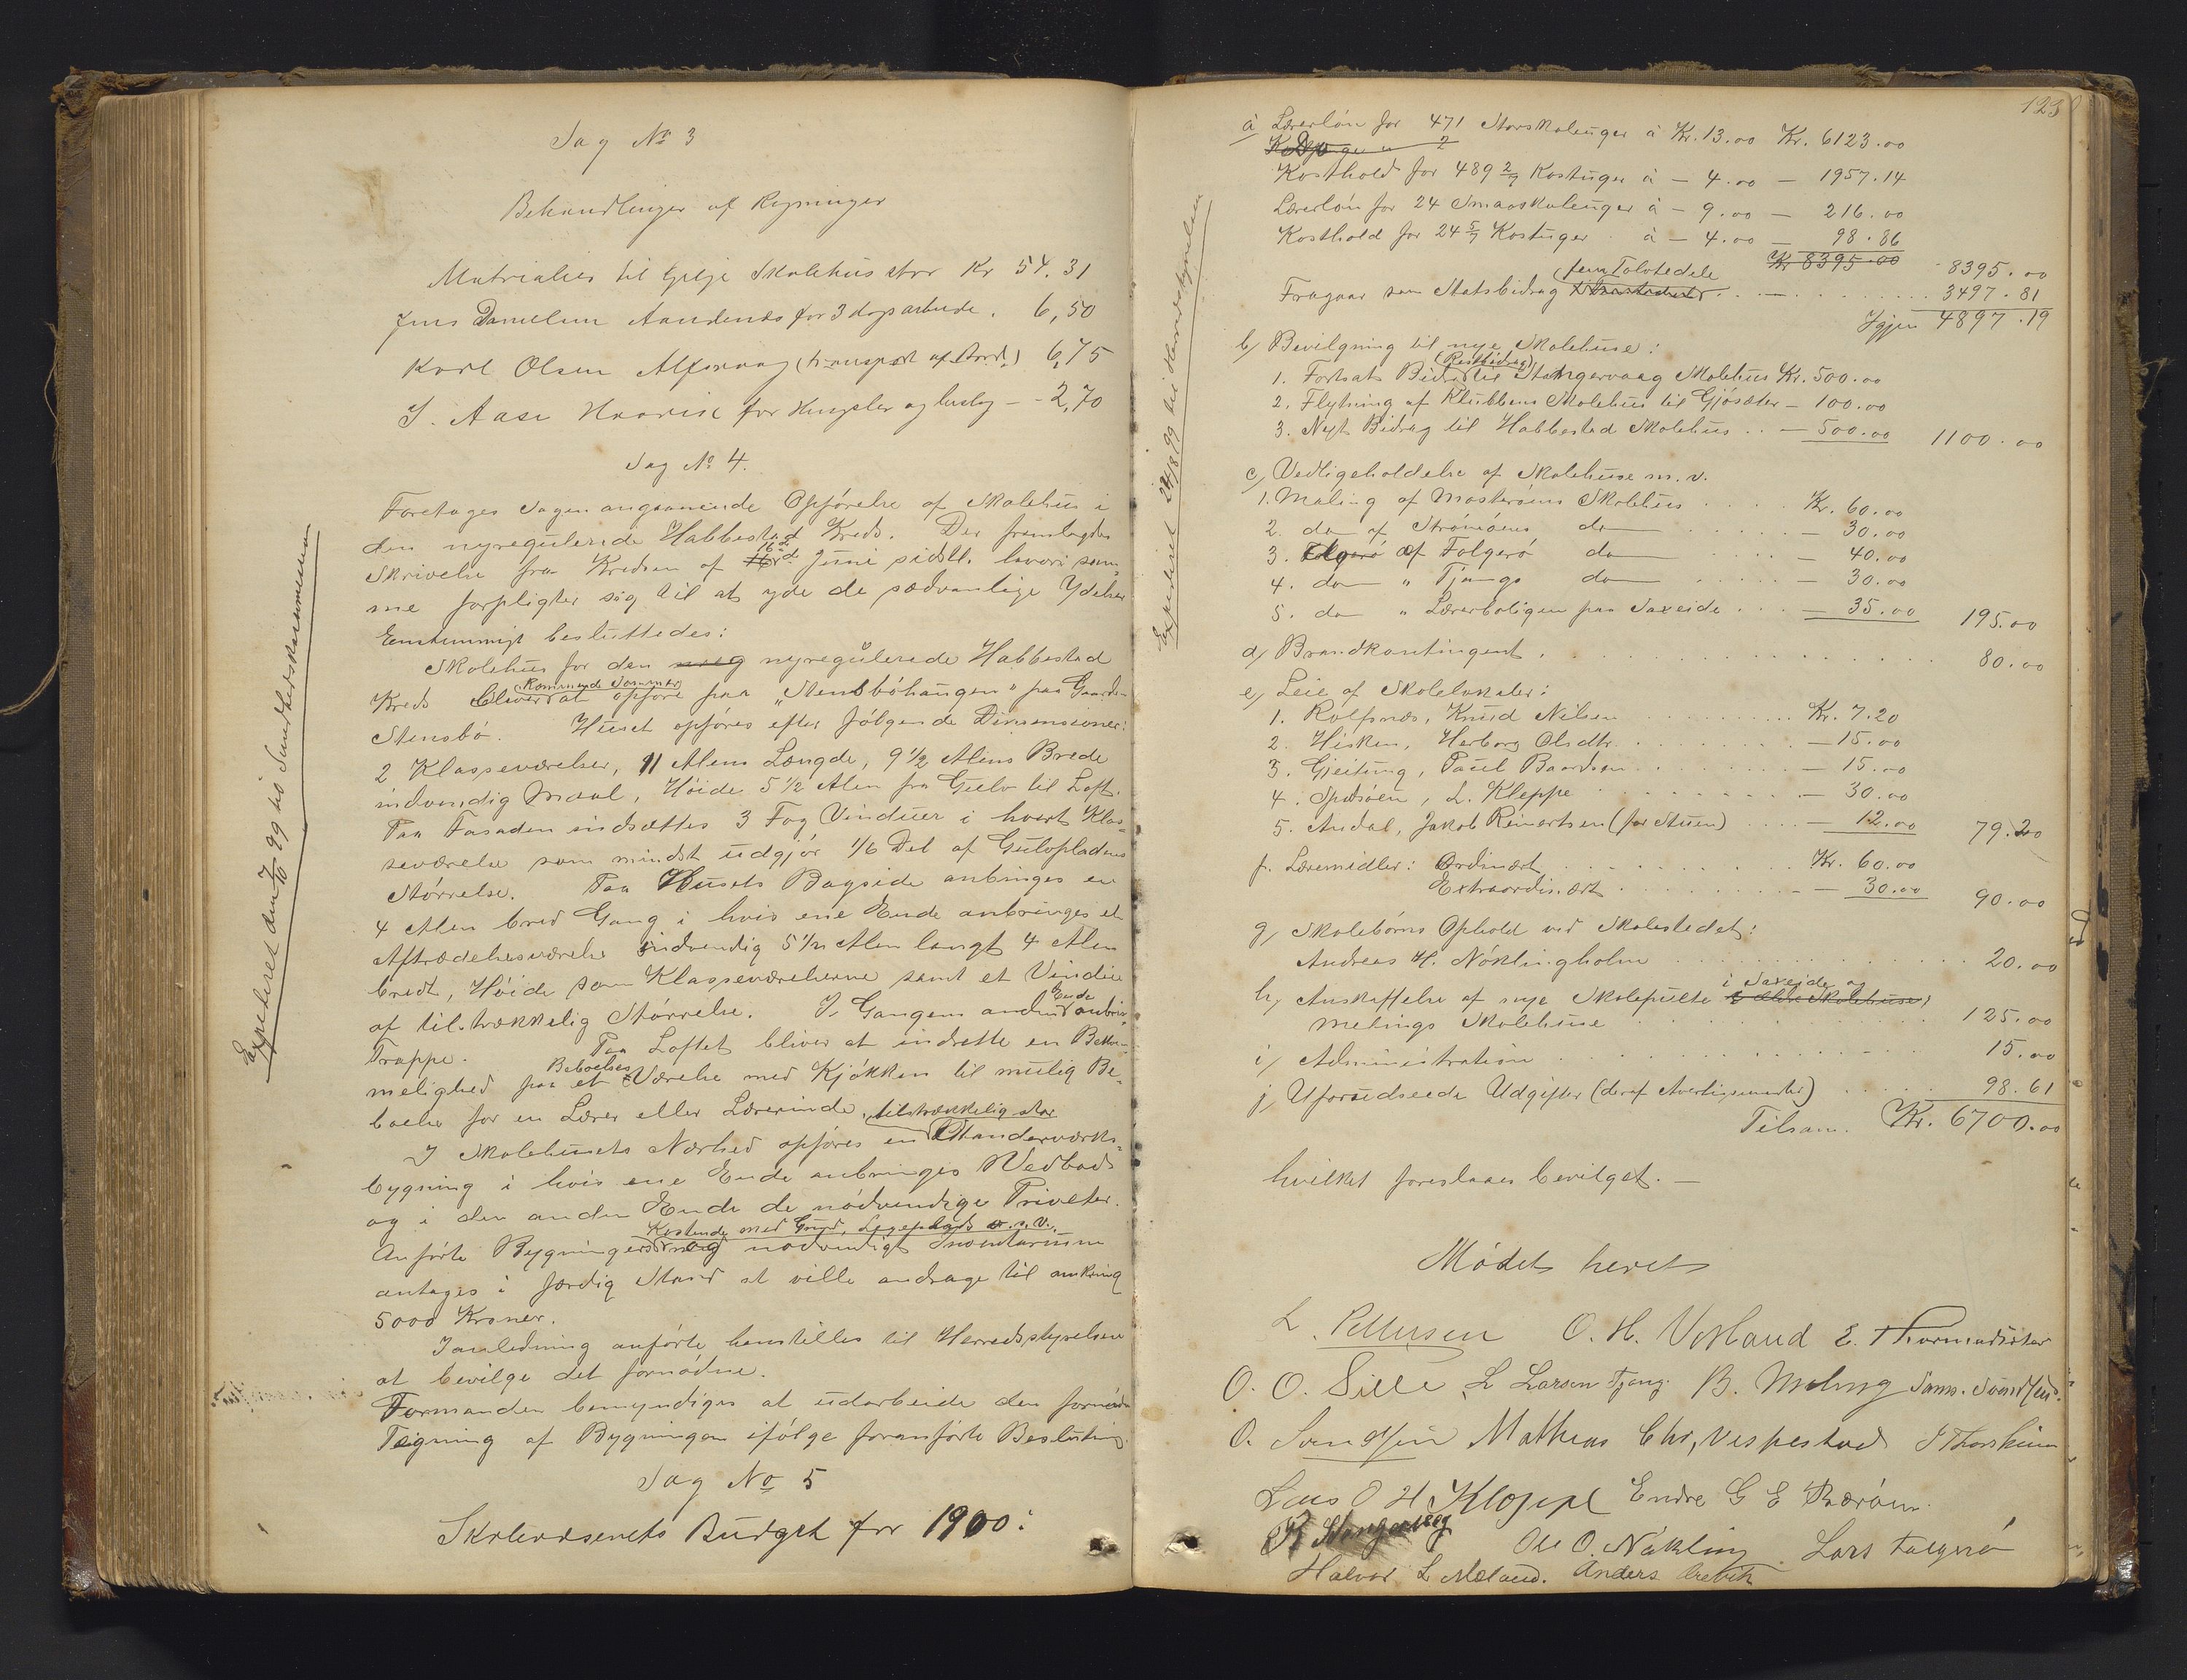 Sag No 3
Behandlinger af Regninger
Matrialier til Gilje Skolehus stor Kr 54,31
Jens Danielsen Aandenes for 3 dags arbeide . 6,50
Karl Olsen Alfsvaag (transport af Bord) 6,75
J. Aase Haavik for Hengsler og beslag -- 2,70
Sag No 4.
Foretages Sagen angaaende Opførelse af Skolehus i
den nyregulerede Habbestad Kreds. Der fremlagdes
Skrivelse fra Kredsen af 16de Juni sidstl. hvori sam-
me forpligter sig til at yde de sædvanlige Ydelser
Eenstemmigt besluttedes:
Skolehus for den nyregulerede Habbestad
Kreds bliver Kommende Sommer at opføre paa "Stensbøhaugen" paa Gaarden
Stensbø. Huset opføres efter følgende Dimensioner:
2 Klasseværelser, 11 Alens Længde, 9 1/2 Alens Brede
indvendig Maal, Høide 5 1/2 Alen fra Gulv til Loft.
Paa Fasaden indsættes 3 Fag Vinduer i hvert Klas-
seværelse som mindst udgjør 1/6 Del af Gulvpladens
Størrelse. Paa Husets Bagside anbringes en
4 Alen bred Gang i hvis ene Ende anbringes et
Aftrædelsesværelse indvendig 5 1/2 Alen langt 4 Alen
bredt, Høide som Klasseværelserne samt et Vindu
af tilstrækkelig Størrelse. I Gangens anden Ende anbrin-
Trappe. Paa Loftet bliver at indrette en Bekve-
melighed paa et Beboelses Værelse med Kjøkken til mulig Be-
boelse for en Lærer eller Lærerinde.
I Skolehusets Nærhed opføres en tilstrækkelig stor Standerværks-
bygning i hvis ene Ende anbringes Vedbod
og i den anden Ende de nødvendige Priveter.
Anførte Bygninger Kostende med Grund, Legeplads o.s.v. og nødvendigt Inventarium
antages i færdig Stand at ville andrage til omkring
5000 Kroner.
I anledning anførte henstilles til Herredsstyrelsen
at bevilge det fornødne.
Formanden bemyndiges at udarbeide den fornødne
Tegning af Bygningen ifølge foranførte Beslutning.
Sag No 5
Skolevæsenets Budget for 1900:
Expederet den 7/10 99 til Sundhedskommissionen
Expederet 24/8 99 til Herredsstyrelsen
123
a) Lærerløn for 471 Storskoleuger à Kr. 13.00 Kr. 6123.00
Kosthold for 489 2/7 Kostuger à - 4.00 - 1957.14
Lærerløn for 24 Smaaskoleuger à - 9.00 - 216.00
Kosthold for 24 5/7 Kostuger à - 4.00 - 98.86
Kr 8395.00 8395.00
Fragaar som Statsbidrag fem Tolvtedele . . . . 3497.81
Igjen 4897.19
b) Bevilgning til nye Skolehuse:
1. Fortsat Bidrag (Restbidrag) til Stangervaag Skolehus Kr. 500.00
2. Flytning af Klubbens Skolehus til Gjøsæter - 100.00
3. Nyt Bidrag til Habbestad Skolehus . . - 500.00 1100.00
c) Vedligeholdelse af Skolehuse m. v.
1. Maling af Mosterøens Skolehus . . . . Kr. 60.00
2. do af Strømøens do . . . . - 30.00
3. af Folgerø do . . . . - 40.00
4. do " Tjangs do . . . . - 30.00
5. do " Lærerboligen paa Saxeide . . . - 35.00 195.00
d) Brandkontingent . . . . 80.00
e) Leie af Skolelokaler:
1. Rolfsnæs, Knud Nilsen . . . . Kr. 7.20
2. Hisken, Herborg Olsdtr. . . . . - 15.00
3. Gjeitung, Paul Baardsen . . . . - 15.00
4. Spidsøen, L. Kleppe . . . . - 30.00
5. Andal, Jakob Reinertsen (for Stuen) . . . - 12.00 79.20
f. Læremidler: Ordinært . . . . Kr. 60.00
Extraordinært . . . . - 30.00 90.00
g) Skolebørns Ophold ved Skolestedet:
Andreas H. Nøklingholm . . . . 20.00
h) Anskaffelse af nye Skolepulte i Saxeide og
Melings Skolehuse . . . . 125.00
i) Administration . . . . 15.00
j) Uforudseede Udgifter (deraf Avertisementer) . . . 98.61
Tilsam. Kr. 6700.00
hvilket foreslaaes bevilget. -
Mødet hevet
L. Pettersen O. H. Vorland E. Thormodsæter
O. O. Sille L Larsen Tjong. B. Meling Sams. Svendsen.
O. Svendsen Mathias Chr, Vespestad
Lars O H Kleppe Endre G E Bærøen.
R Stangervaag Ole O. Nøkling Lars Folgerø
Halvor L Mæland. Anders